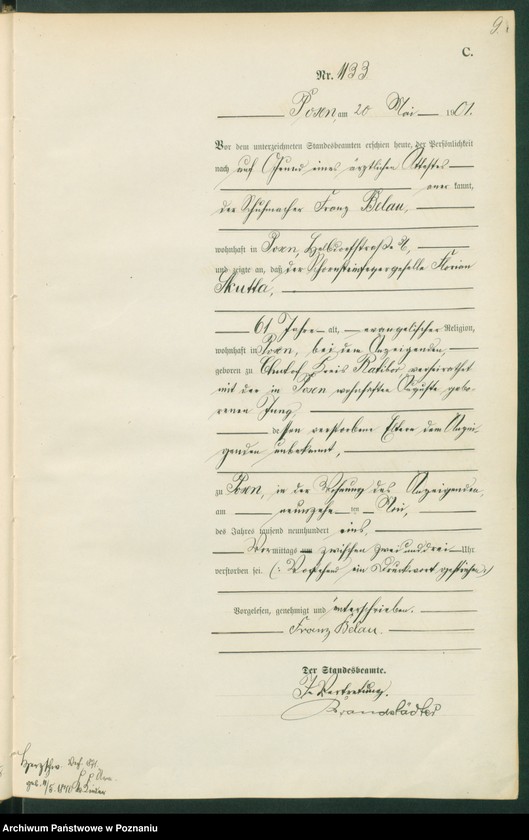 9.
C.
Nr. 1133
Posen, am 20 Mai 1901.
Vor dem unterzeichneten Standesbeamten erschien heute, der Persönlichkeit
nach auf Grund eines ärztlichen Attestes
aner kannt,
der Schuhmacher Franz Belau,
wohnhaft in Posen,
und zeigte an, daß der Schornsteinfegergeselle Florian
Skutta,
61 Jahre alt, evangelischer Religion,
wohnhaft in Posen, bei dem Anzeigenden,
geboren zu Kreis Ratibor verheirathet
mit der in Posen wohnhaften Auguste gebo-
renen Jung,
dessen verstorbene Eltern dem Anzei-
genden unbekannt,
zu Posen, in der Wohnung des Anzeigenden,
am neunzehn ten Mai,
des Jahres tausend neunhundert eins,
Vormittags um zwischen zwei und drei Uhr
verstorben sei. (: Vorstehend ein Druckwort gestrichen:)
Vorgelesen, genehmigt und unterschrieben.
Franz Belau.
Der Standesbeamte.
In Vertretung.
Brandstädter
Archiwum Państwowe w Poznaniu